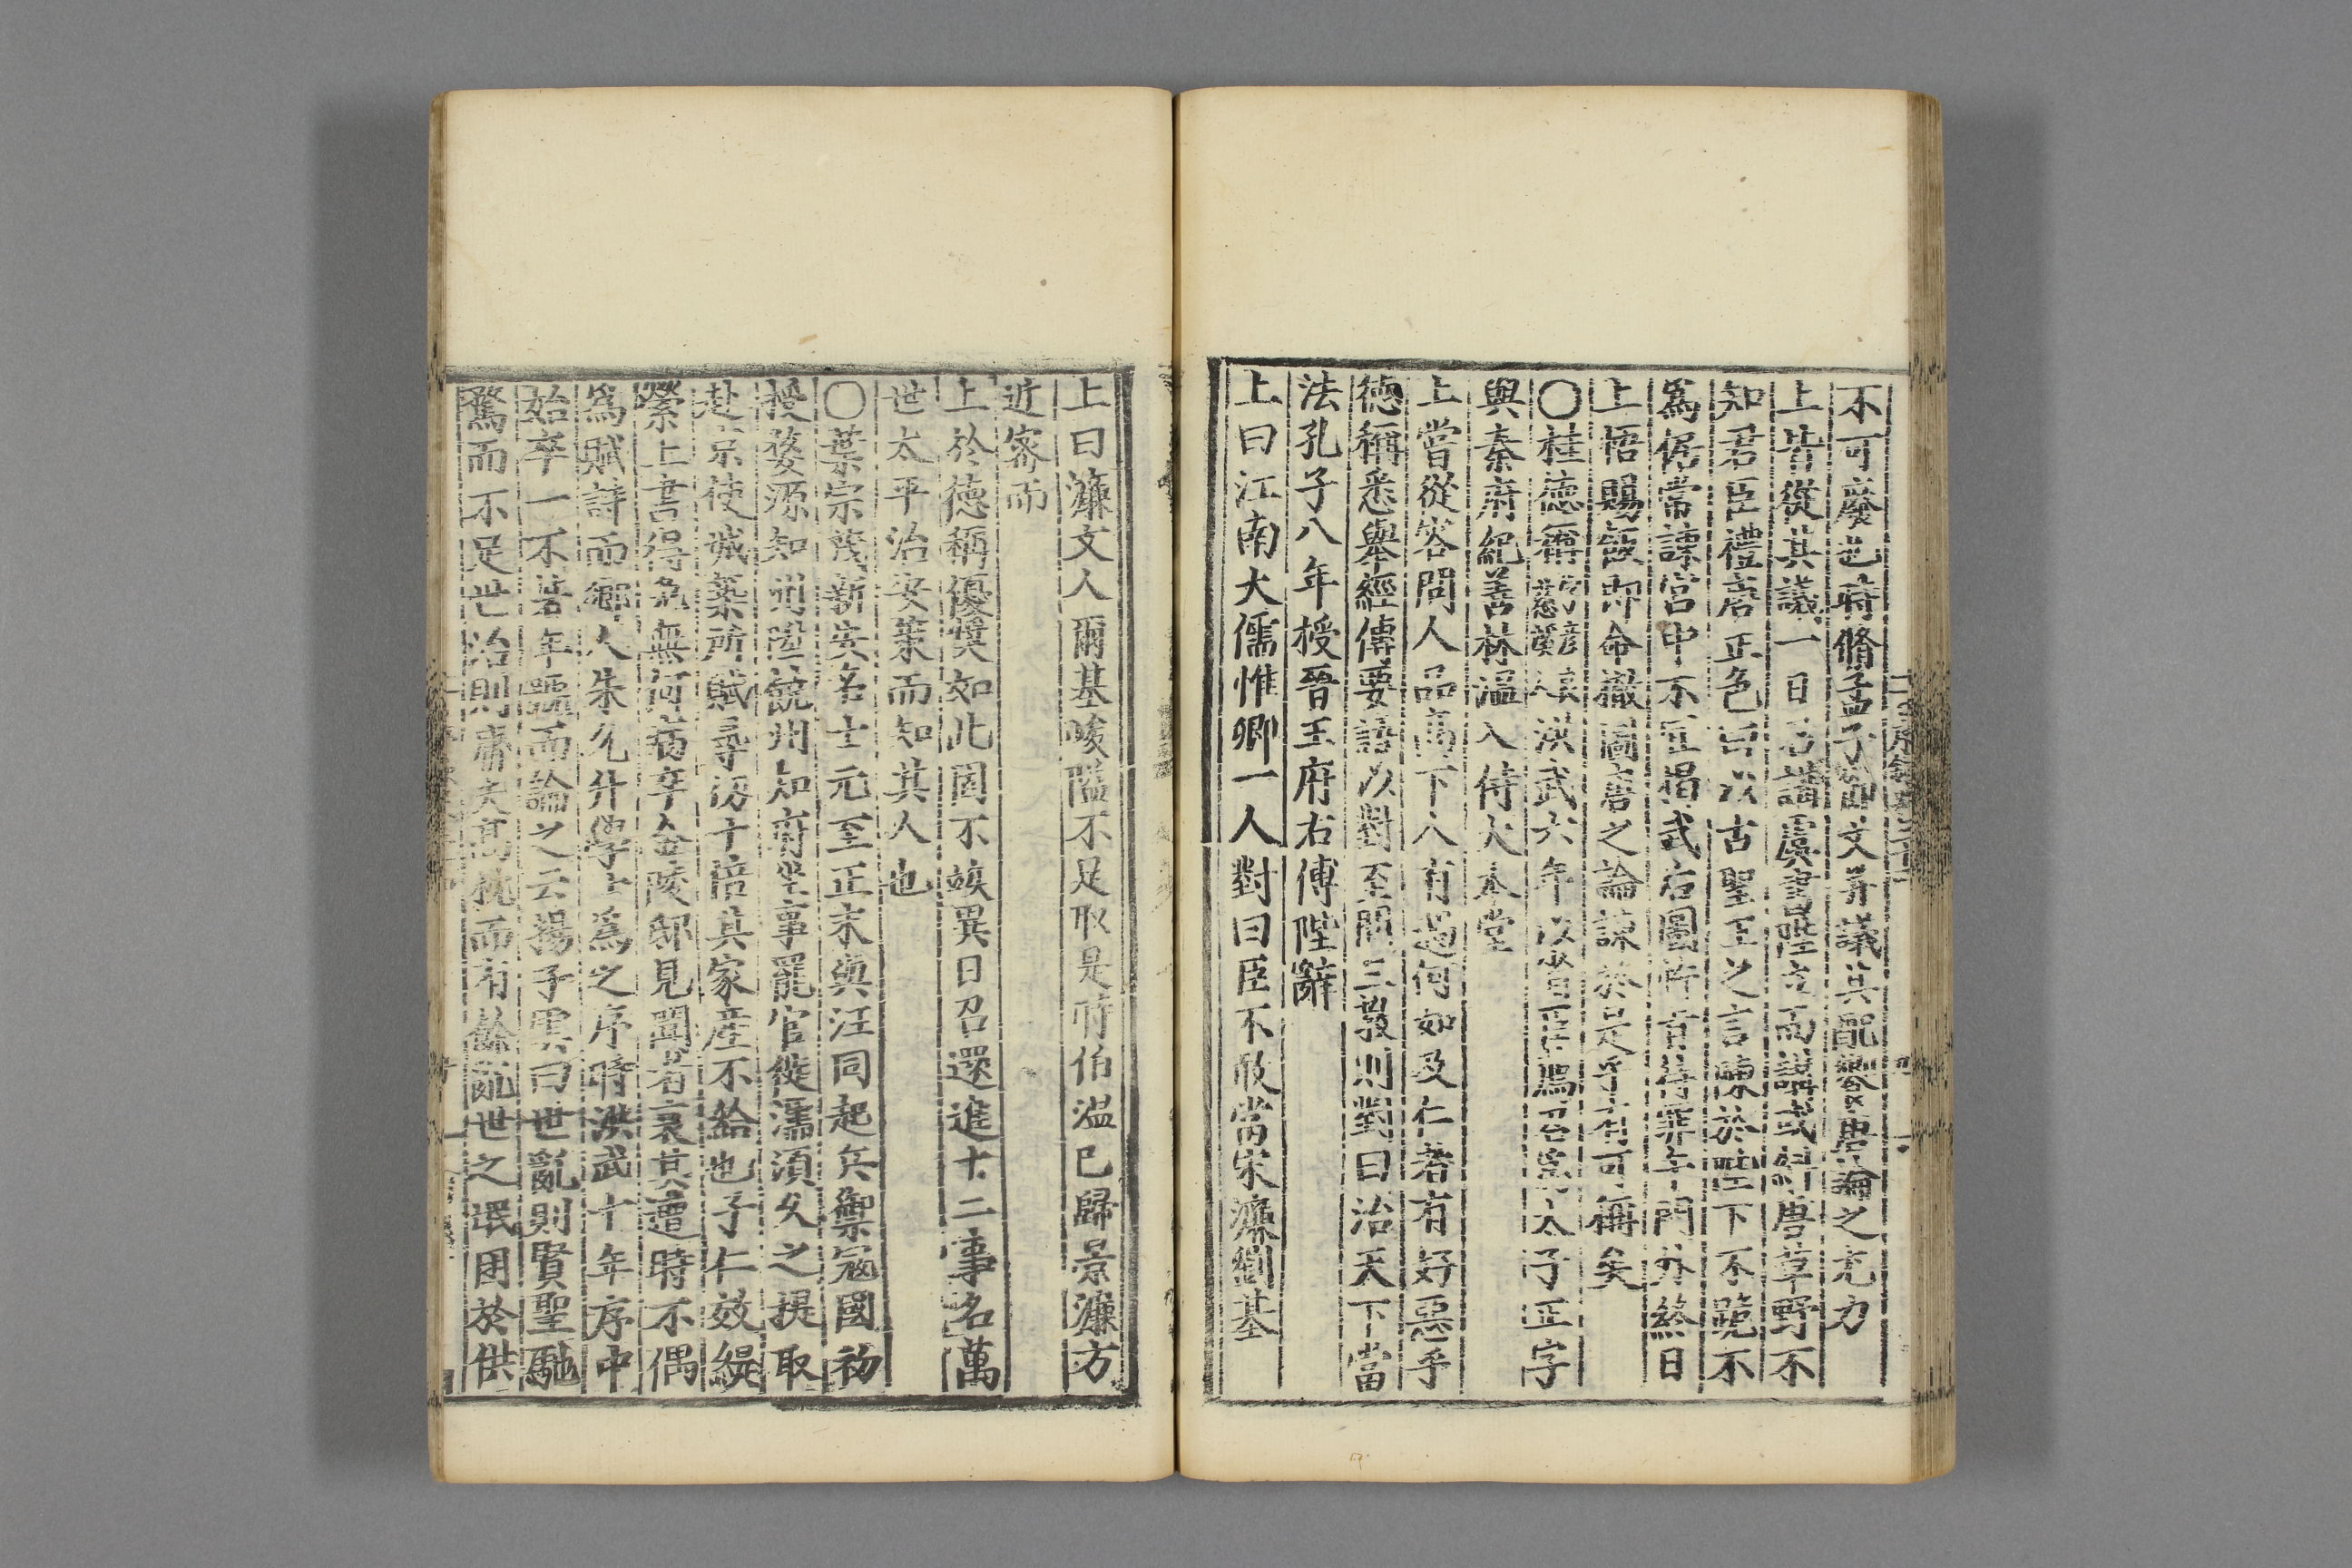 不可廢也時脩孟子節文并議其配饗唐論之尤力
上皆從其議一日召講虞書陛立而講或糾唐草野不
知君臣禮唐正色曰以古聖王之言陳於陛下不跪不
爲倨常諫宫中不宜揭武后圖忤旨待罪午門外終日
上悟賜飯即命撤圖唐之論諫於是乎有可稱矣
○桂德稱彦良慈谿人洪武六年以省臣薦召爲太子正字
與秦府紀善林温入侍大本堂
上嘗從容問人品高下人有過何如及仁者有好惡乎
德稱悉舉經傳要語以對至問三教則對曰治天下當
法孔子八年授晉王府右傅陛辭
上曰江南大儒惟卿一人對曰臣不敢當宋濂劉基
上曰濂文人爾基峻隘不足取是時伯温已歸景濂方
近密而
上於德稱優奨如此固不竢異日召還進十二事名萬
世太平治安策而知其人也
○葉宗茂新安名士元至正末與汪同起兵禦寇國初
授婺源知州陞饒州知府坐事罷官徙濡須久之提取
赴京使城築所賦尋丈十倍其家産不給也子仁效緹
縈上書得免無何病卒金陵邸見聞者哀其遭時不偶
爲賦詩而鄉人朱允升學士爲之序時洪武十年序中
始卒一不著年號而論之云揚子雲曰世亂則賢聖馳
騖而不足世治則庸夫高枕而有餘亂世之氓困於供